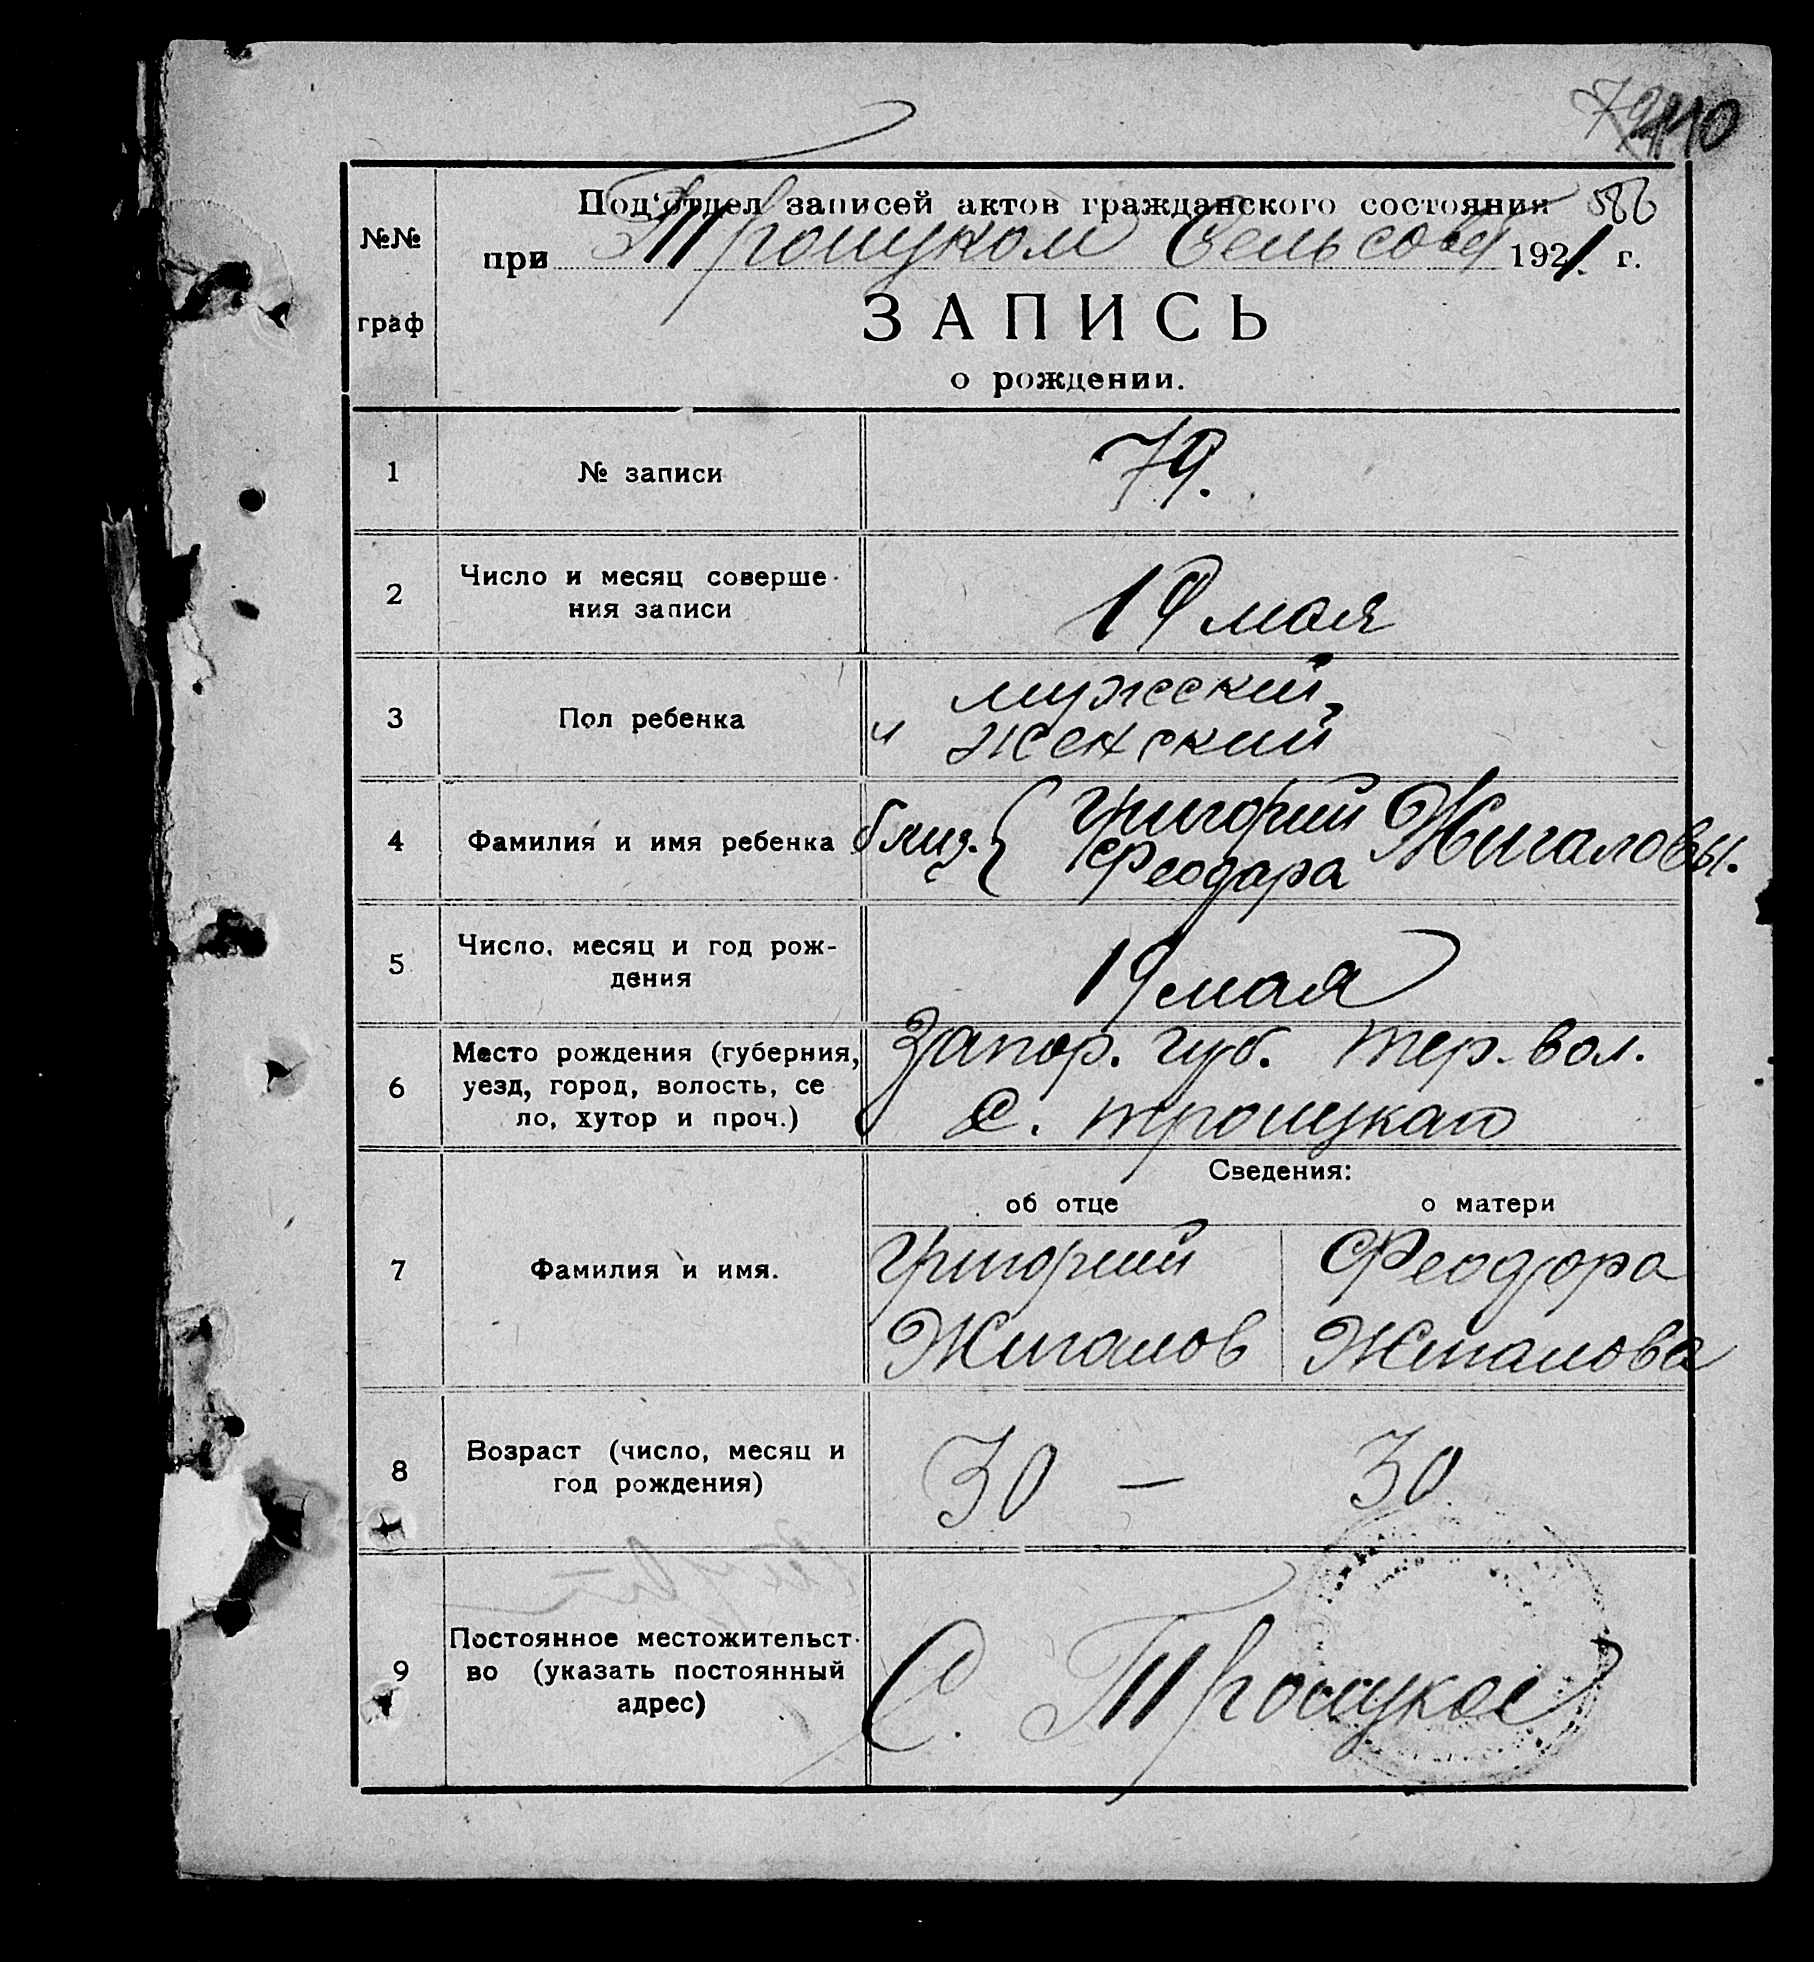 110
Под'отдел записей актов гражданского состояния
№№
при Троицком Сельсовет 1921 г.
граф
ЗАПИСЬ
о рождении.
1 № записи 79.
2 Число и месяц соверше-
ния записи 19 мая
3 Пол ребенка мужеский,
и женский
4 Фамилия и имя ребенка близ. { Григорий Жигаловы.
Феодора
5 Число, месяц и год рож-
дения 19 мая
6 Место рождения (губерния,
уезд, город, волость, се
ло, хутор и проч.)
Запор. губ. тер. вол.
с. троицкаго
Сведения:
об отце о матери
7 Фамилия и имя.
Григорий Феодора
Жигалов Жигалова
8 Возраст (число, месяц и
год рождения)
30 — 30
9 Постоянное местожительст-
во (указать постоянный
адрес)
С. Троицкое